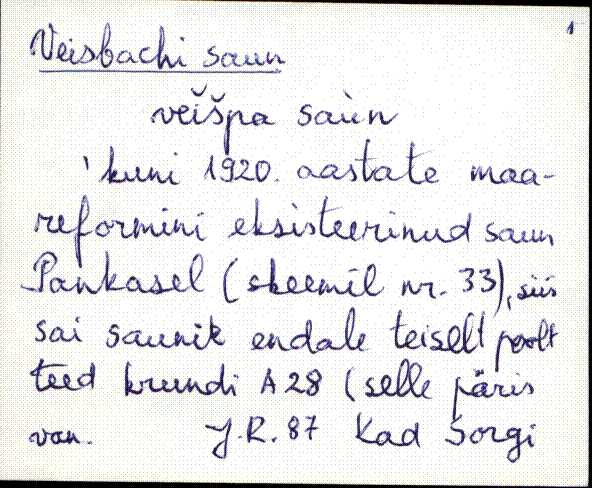 1
Veisbachi saun
veišpa saùn
'kuni 1920. aastate maa-
reformini eksisteerinud saun
Pankasel (skeemil nr. 33), siis
sai saunik endale teiselt poolt
teed krundi A28 (selle päris
van. J.R. 87 Kad Sorgi